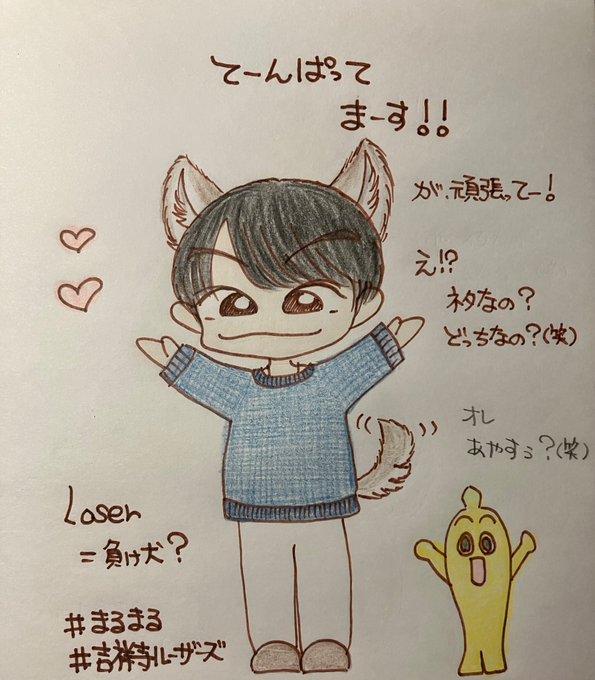 てーんぱって
まーす!!
が、頑張ってー!
え!?
ネタなの?
どっちなの?(笑)
オレ
あやすぅ?(笑)
Loser
=負け犬?
#まるまる
#吉祥寺ルーザーズ